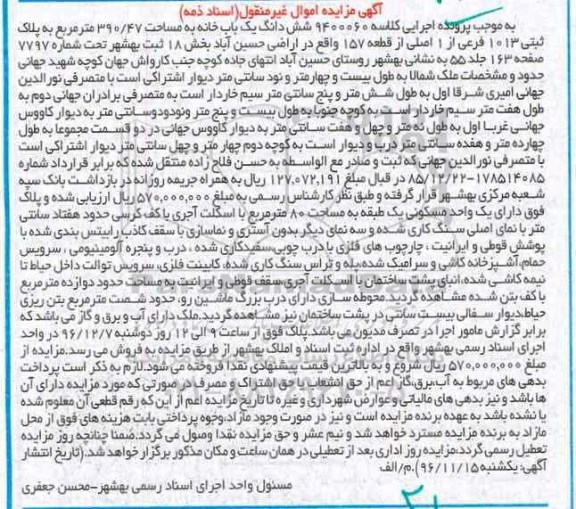 آگهی مزایده اموال غیرمنقول(اسناد ذمه)
به موجب پرونده اجرایی کلاسه ۹۴۰۰۰۶۰ شش دانگ یک باب خانه به مساحت ۳۹۰/۴۷ مترمربع به پلاک
ثبتی ۱۰۱۳ فرعی از ۱ اصلی از قطعه ۱۵۷ واقع در اراضی حسین آباد بخش ۱۸ ثبت بهشهر تحت شماره ۷۷۹۷
صفحه ۱۶۳ جلد ۵۵ به نشانی بهشهر روستای حسین آباد انتهای جاده کوچه جنب کارواش جهان کوچه شهید جهانی
حدود و مشخصات ملک شمالا به طول بیست و چهارمتر و نود سانتی متر دیوار اشتراکی است با متصرفی نورالدین
جهانی امیری شرقا اول به طول شش متر و پنج سانتی متر سیم خاردار است به متصرفی برادران جهانی دوم به
طول هفت متر سیم خاردار است به کوچه جنوبا به طول بیست و پنج متر ونودودوسانتی متر به دیوار کاووس
جهانی غربا اول به طول نه متر و چهل و هفت سانتی متر به دیوار کاووس جهانی در دو قسمت مجموعا به طول
چهارده متر و هفده سانتی متر درب و دیوار است به کوچه دوم چهار متر و چهل سانتی متر دیوار اشتراکی است
با متصرفی نورالدین جهانی که ثبت و صادر مع الواسطه به حسن فلاح زاده منتقل شده که برابر قرارداد شماره
۱۷۸۵۱۴۰۸۵-۸۵/۱۲/۲۲ در قبال مبلغ ۱۲۷,۰۷۲,۱۹۱ ریال به همراه جریمه روزانه در بازداشت بانک سپه
شعبه مرکزی بهشهر قرار گرفته و طبق نظر کارشناس رسمی به مبلغ ۵۷۰,۰۰۰,۰۰۰ ریال ارزیابی شده و پلاک
فوق دارای یک واحد مسکونی یک طبقه به مساحت ۸۰ مترمربع با اسکلت آجری با کف کرسی حدود هفتاد سانتی
متر با نمای اصلی سنگ کاری شده و سه نمای دیگر بدون آستری و نماسازی با سقف کاذب رابیتس بندی شده با
پوشش قوطی و ایرانیت ، چارچوب های فلزی با درب چوبی،سفیدکاری شده ، درب و پنجره آلومینیومی ، سرویس
حمام،آشپزخانه کاشی و سرامیک شده،پله و تراس سنگ کاری شده، کابینت فلزی، سرویس توالت داخل حیاط تا
نیمه کاشی شده، انباری پشت ساختمان با اسکلت آجری،سقف قوطی و ایرانیت به مساحت حدود دوازده مترمربع
با کف بتن شده مشاهده گردید.محوطه سازی دارای درب بزرگ ماشین رو، حدود شصت مترمربع بتن ریزی
حیاط،دیوار سفالی بیست سانتی در پشت ساختمان نیز مشاهده گردید.ملک دارای آب و برق و گاز می باشد که
برابر گزارش مامور اجرا در تصرف مدیون می باشد.پلاک فوق از ساعت ۹ الی ۱۲ روز دوشنبه ۹۶/۱۲/۷ در واحد
اجرای اسناد رسمی بهشهر واقع در اداره ثبت اسناد و املاک بهشهر از طریق مزایده به فروش می رسد.مزایده از
مبلغ ۵۷۰,۰۰۰,۰۰۰ ریال شروع و به بالاترین قیمت پیشنهادی نقدا فروخته می شود.لازم به ذکر است پرداخت
بدهی های مربوط به آب،برق،گاز اعم از حق انشعاب یا حق اشتراک و مصرف در صورتی که مورد مزایده دارای آن
ها باشد و نیز بدهی های مالیاتی و عوارض شهرداری و غیره تا تاریخ مزایده اعم از این که رقم قطعی آن معلوم شده
یا نشده باشد به عهده برنده مزایده است و نیز در صورت وجود مازاد،وجوه پرداختی بابت هزینه های فوق از محل
مازاد به برنده مزایده مسترد خواهد شد و نیم عشر و حق مزایده نقدا وصول می گردد.ضمنا چنانچه روز مزایده
تعطیل رسمی گردد،مزایده روز اداری بعد از تعطیلی در همان ساعت و مکان مذکور برگزار خواهد شد.(تاریخ انتشار
آگهی: یکشنبه ۹۶/۱۱/۱۵).م/الف
مسئول واحد اجرای اسناد رسمی بهشهر-محسن جعفری